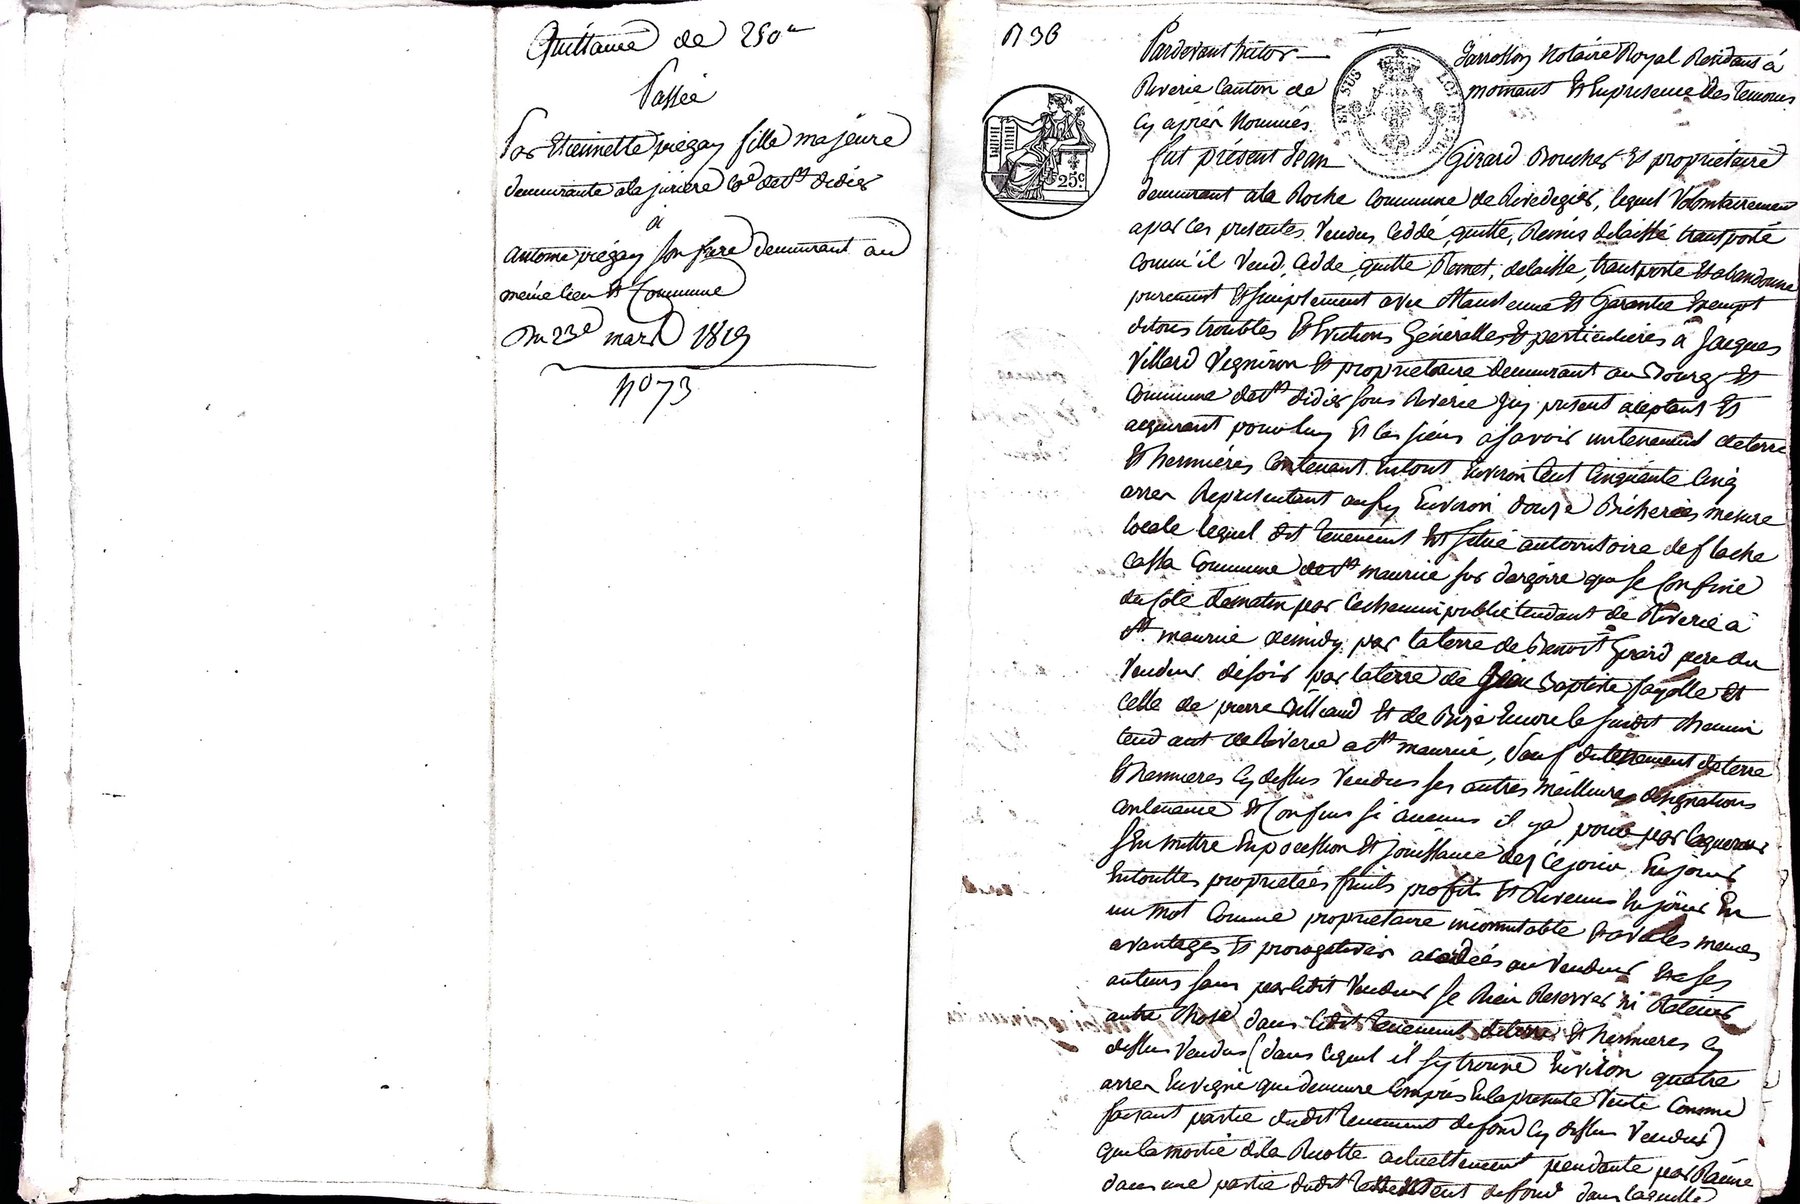 Quittance de 250#
Passée
Par Etiennette piegay fille majeure
demeurante a la jurière Cne de St didier
a
antoine piégay son frere demeurant au
même lieu et Commune
Du 23e mars 1819
no 73
n 36
Pardevant hector Jarrosson Notaire Royal Résidant à
Riverie Canton de mornant et En presence des temoins
Cy après Nommés
fut présent Jean Girard Boucher et proprietaire
demeurant a la Roche Commune de Rivedegier, lequel Volontairement
a par ces presentes Vendu Ceddé, quitté, Rémis délaissé transporté
comm'il Vend, Cedde, quitte Remet, delaisse, transporte et abandonne
purement et simplement avec Maintenue et Garantie Exempt
de tous troubles et Evictions Généralles et particulieres à Jacques
Villard Vigneron et proprietaire demeurant au Bourg et
Commune de St didier sous Riverie Icy présent aceptant et
acquerant pour luy et les siens a savoir un tenement de terre
et hermières Contenant En tout Environ Cent Cinquante Cinq
arres Representant aussy Environ douze Bicherées mesure
locale lequel dit tenement Est situé au territoire de flache
Cassa Commune de St maurice sur dargoire qui se Confine
du Coté de matin par le chemin public tendant de Riverie à
St maurice de midy par la terre de Benoit Girard pere du
Vendeur de soir par la terre de Jean Baptiste fayolle et
celle de pierre Villiand et de Bize Encore le susdit chemin
tendant de Riverie a St maurice, Sauf du tennement de terre
et hermieres Cy dessus Vendus ses autres meilleures désignations
contenance et Confins si aucuns il y a pour par l'aquereur
s'En mettre En possession et jouissance dez Ce jour En jouir
En touttes proprietées fruits profits et Revenus En jouir En
un mot Comme proprietaire incomutable et avec les memes
avantages et prerogatives acordées au Vendeur et a ses
auteurs sans par ledit Vendeur se Rien Reserver ni Retenir
autre chose dans ledit tenement de terre et hermieres Cy
dessus Vendus (dans lequel il s'y trouve Environ quatre
arres En vigne qui demeure Compris En la presente Vente Comme
faisant partie dudit tenement de fond Cy dessus Vendus)
que la moitié de la Recolte actuellement pendante par Racine
dans une partie dudit tennement de fond dans laquelle
25c